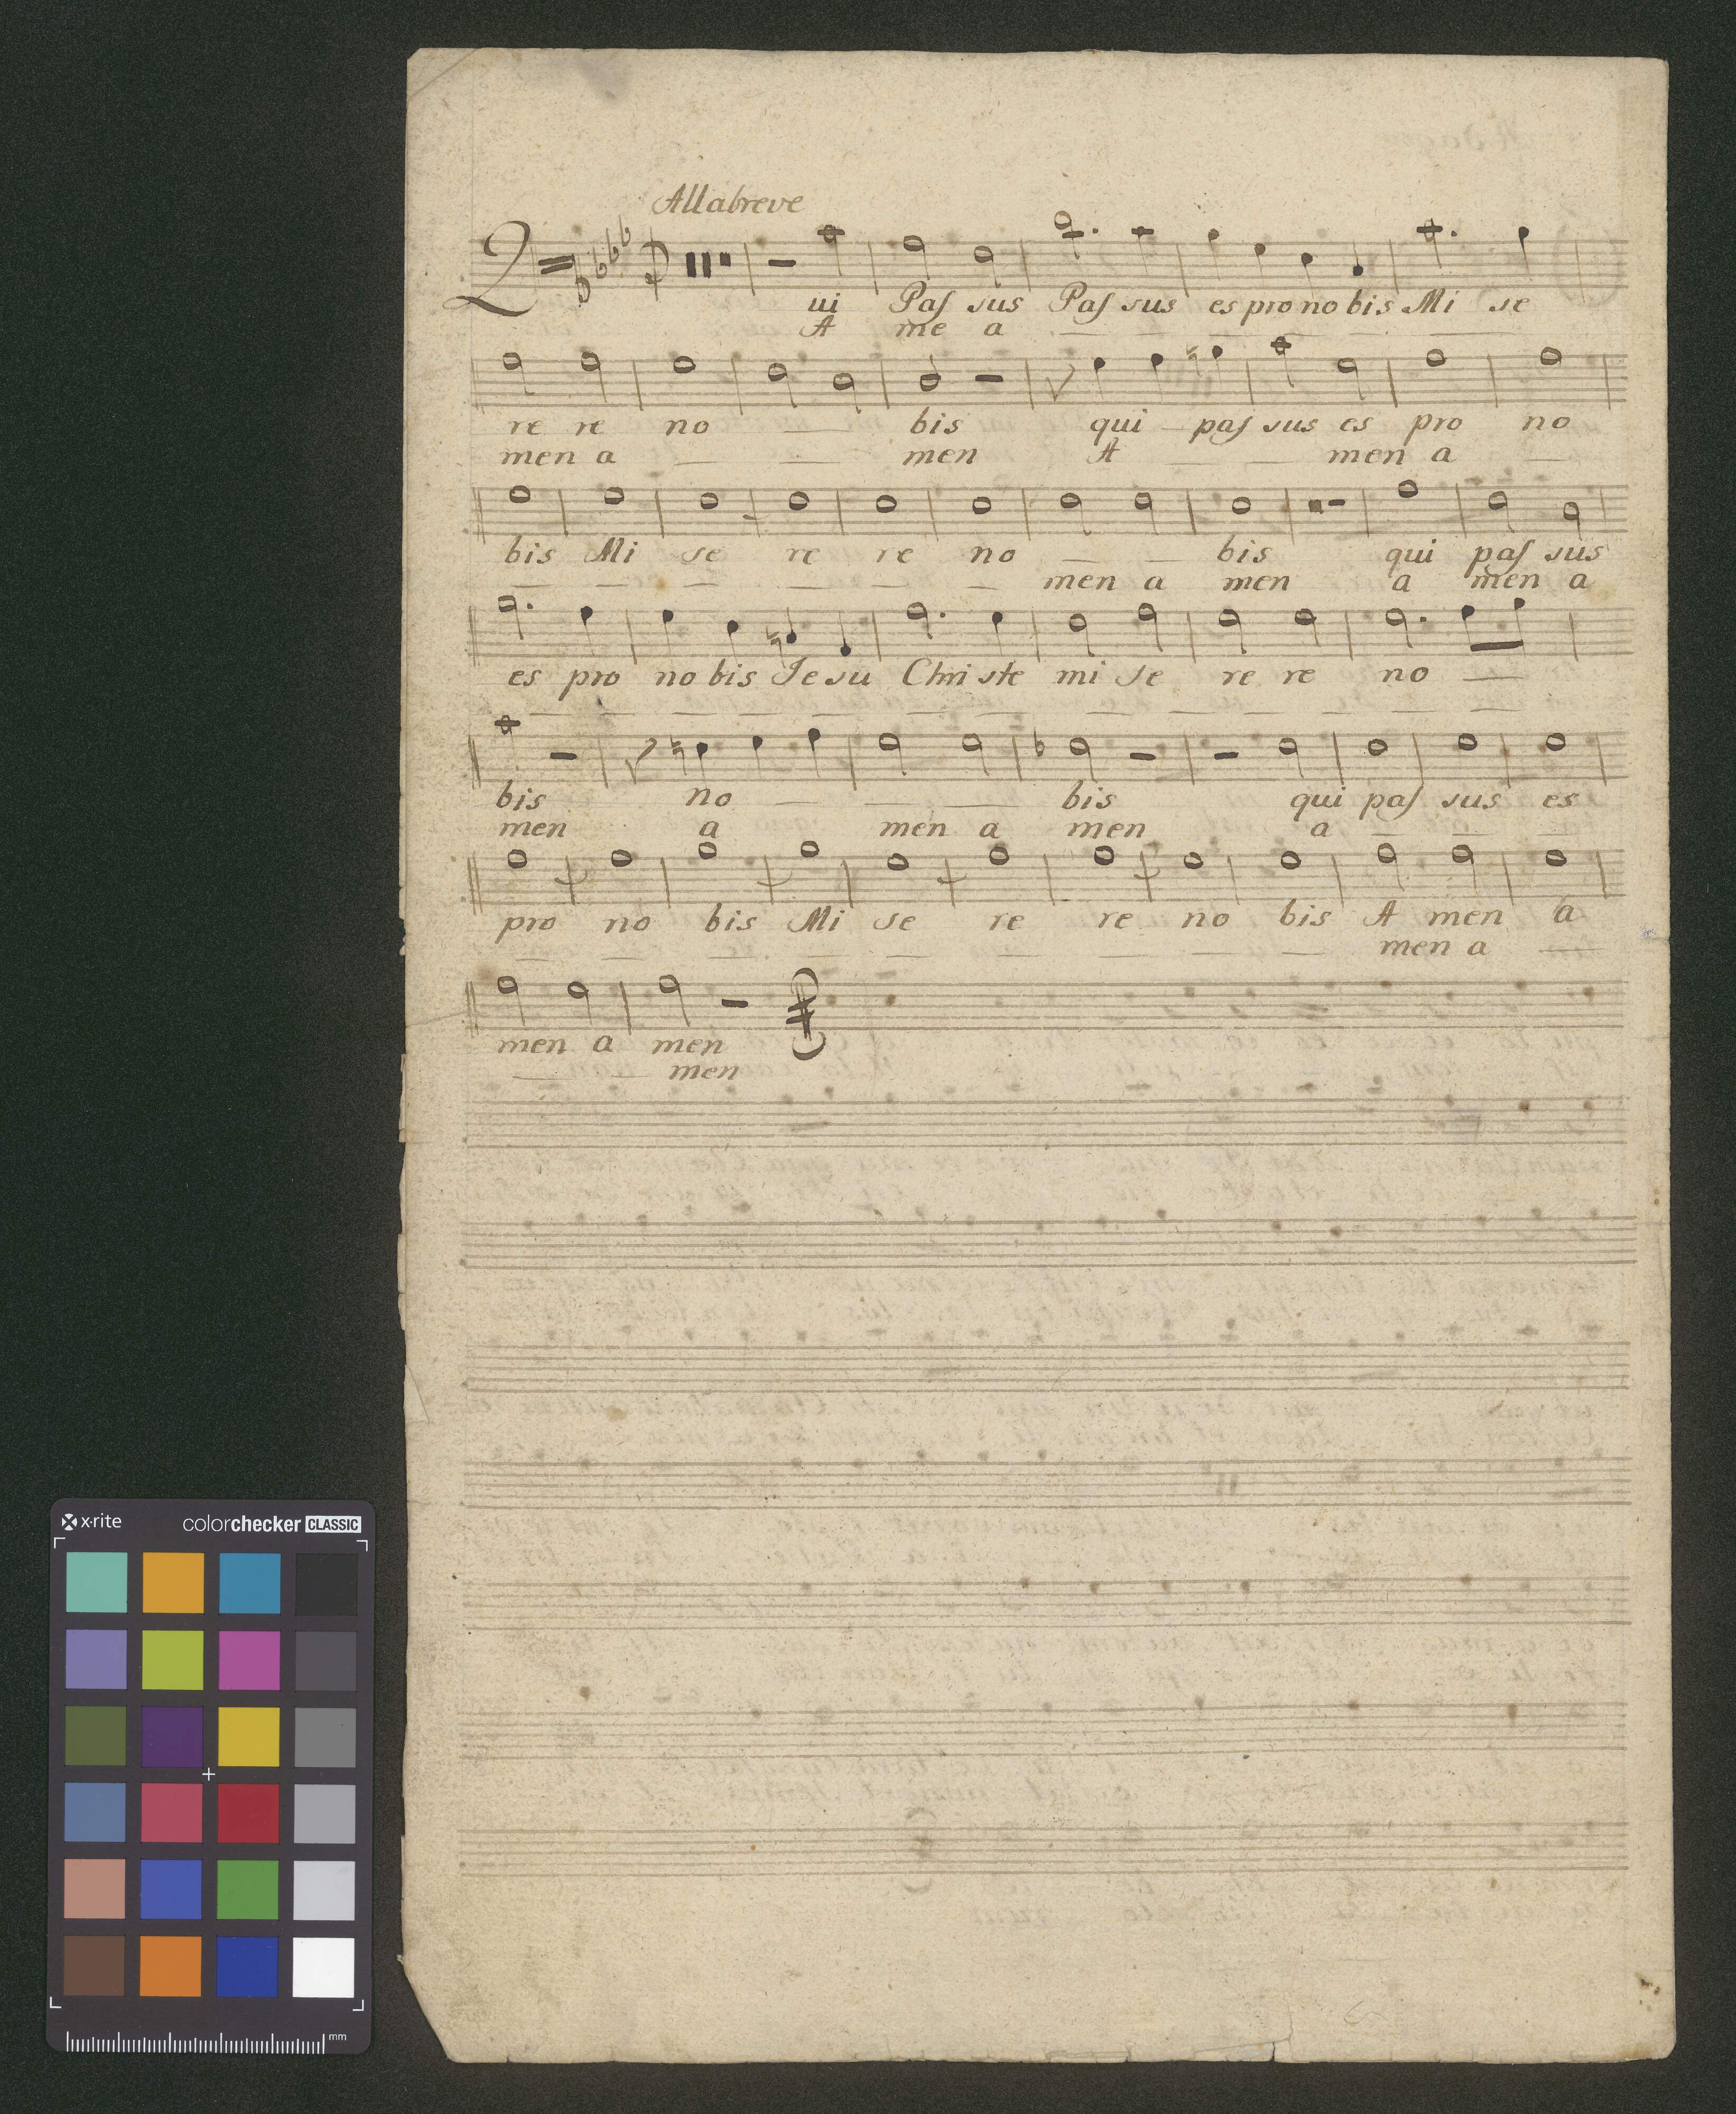 Allabreve
Qui Paſ sus Paſ sus es pro no bis Mi se
A me a
re re no bis qui paſ sus es pro no
men a men A men a
bis Mi se re re no bis qui paſ sus
men a men a men a
es pro no bis Je su Chri ste mi se re re no
bis no bis qui paſ sus es
men a men a men a
pro no bis Mi se re re no bis A men a
men a
men a men
men
x·rite colorchecker CLASSIC
mm